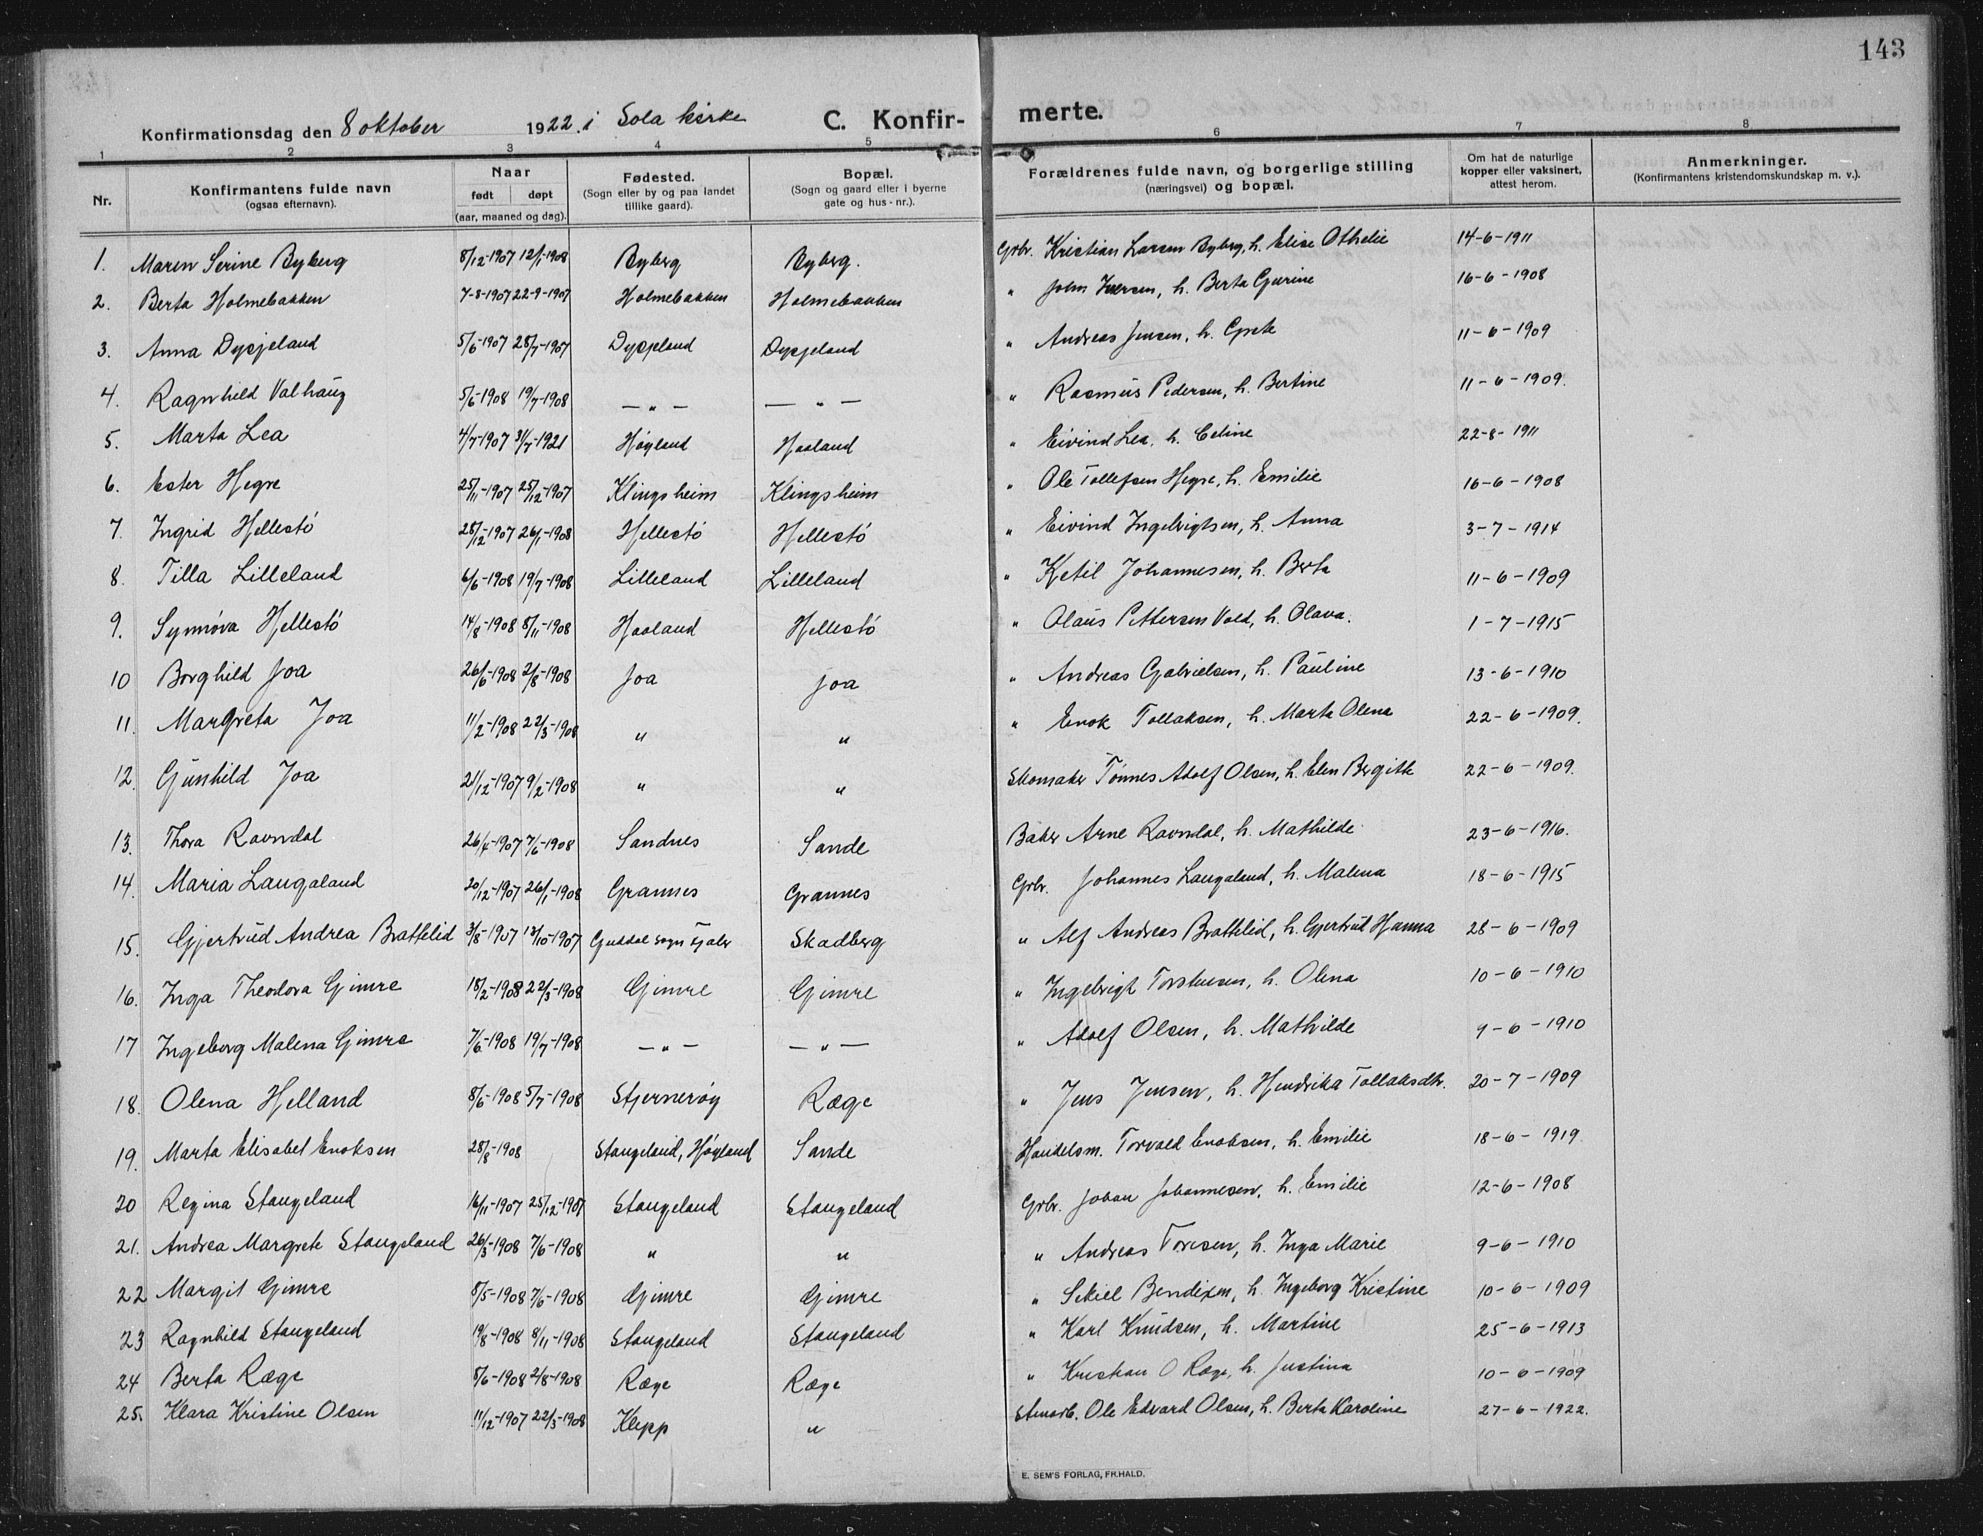 143
Konfirmationsdag den 8 oktober 1922. i Sola kirke C. Konfir- merte.
1 2 3 4 5 6 7 8
Nr. Konfirmantens fulde navn (ogsaa efternavn). Naar født døpt (aar, maaned og dag). Fødested. (Sogn eller by og paa landet tillike gaard). Bopæl. (Sogn og gaard eller i byerne gate og hus-nr.). Forældrenes fulde navn, og borgerlige stilling (næringsvei) og bopæl. Om hat de naturlige kopper eller vaksinert, attest herom. Anmerkninger. (Konfirmantens kristendomskundskap m. v.).
1. Maren Serine Byberg 8/12-1907 12/1-1908 Byberg Byberg. Grbr. Kristian Larsen Byberg, h. Elise Othelie 14-6-1911
2. Berta Holmebakken 7-8-1907 22-9-1907 Holmebakken Holmebakken " John Iversen, h. Berta Gurine 16-6-1908
3. Anna Dysjeland 5/6-1907 28/7-1907 Dysjeland Dysjeland " Andreas Jensen, h. Grete 11-6-1909
4. Ragnhild Valhaug 5/6-1908 19/7-1908 — " — — " — " Rasmus Pedersen, h. Bertine 11-6-1909.
5. Marta Lea 4/7-1907 31/7-1921 Høyland Haaland " Eivind Lea, h. Celine 22-8-1911
6. Ester Hegre 25/11-1907 25/12-1907 Klingsheim Klingsheim " Ole Tollefsen Hegre, h. Emilie 16-6-1908
7. Ingrid Hellestø 28/12-1907 26/1-1908 Hellestø Hellestø " Eivind Ingebrigtsen, h. Anna 3-7-1914
8. Tilla Lilleland 6/6-1908 19/7-1908 Lilleland Lilleland " Kjetil Johannesen, h. Berta 11-6-1909
9. Synnøva Hellestø 14/8-1908 8/11-1908 Haaland Hellestø " Olaus Pettersen Vold, h. Olava. 1-7-1915
10 Borghild Joa 26/6-1908 2/8-1908 Joa Joa " Andreas Gabrielsen, h. Pauline 13-6-1910
11. Margreta Joa 11/2-1908 22/3-1908 " " " Enok Tollaksen, h. Marta Olena 22-6-1909.
12. Gunhild Joa 21/12-1907 9/2-1908 " " Skomaker Tønnes Adolf Olsen, h. Elen Bergitte 22-6-1909.
13. Thora Ravndal 26/4-1907 7/6-1908 Sandnes Sande Baker Arne Ravndal, h. Mathilde 23-6-1916.
14. Maria Laugaland 20/12-1907 26/1-1908 Grannes Grannes Grbr. Johannes Laugaland, h. Malena 18-6-1915
15. Gjertrud Andrea Brattelid 3/8-1907 13/10-1907 Guddal sogn Fjaler Skadberg " Alf Andreas Brattelid, h. Gjertrud Hanna 28-6-1909
16. Inga Theodora Gimre 18/2-1908 22/3-1908 Gimre Gimre " Ingebrigt Torstensen, h. Olena 10-6-1910
17 Ingeborg Malena Gimre 7/6-1908 19/7-1908 — " — — " — " Adolf Olsen, h. Mathilde 9-6-1910
18. Olena Helland 8/6-1908 5/7-1908 Stjernerøy Ræge " Jens Jensen, h. Hendrika Tollaksdtr. 20-7-1909
19. Marta Elisabet Enoksen 28/8-1908 Stangeland, Høyland Sande Handelsm. Torvald Enoksen, h. Emilie 18-6-1919.
20 Regina Stangeland 16/11-1907 25/12-1907 Stangeland Stangeland Grbr. Johan Johannesen, h. Emilie 12-6-1908
21. Andrea Margrete Stangeland 26/3-1908 7/6-1908 " " " Andreas Toresen, h. Inga Marie 9-6-1910
22 Margit Gimre 8/5-1908 7/6-1908 Gimre Gimre " Sekiel Bendixen, h. Ingeborg Kristine 10-6-1909
23 Ragnhild Stangeland 19/8-1908 8/11-1908 Stangeland Stangeland " Karl Knudsen, h. Martine 25-6-1913
24 Berta Ræge 8/6-1908 2/8-1908 Ræge Ræge " Kristian O Ræge, h. Justina 10-6-1909
25. Klara Kristine Olsen 11/12-1907 22/3-1908 Klepp " Stenarb. Ole Edvard Olsen, h. Berta Karoline 27-6-1922.
E. SEM'S FORLAG, FR.HALD.